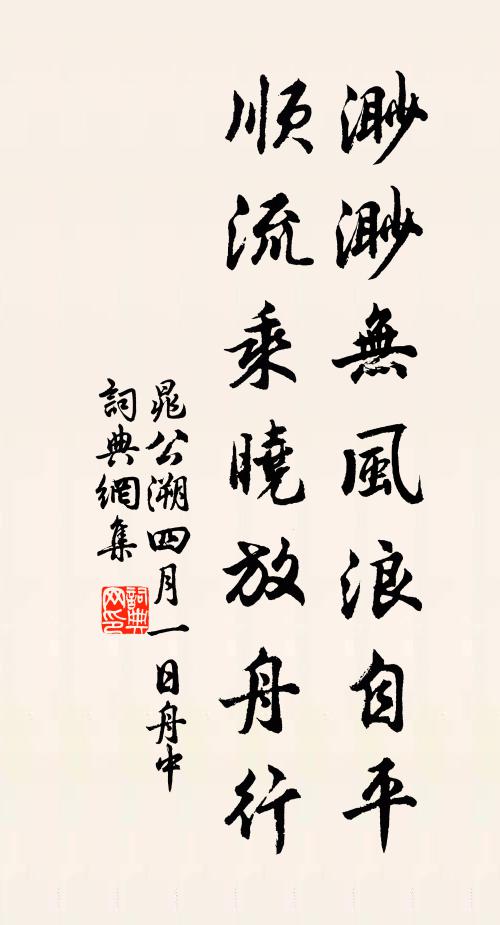 渺渺無風浪自平
順流乘曉放舟行
晁公溯四月一日舟中
詞典網集
詞典网印